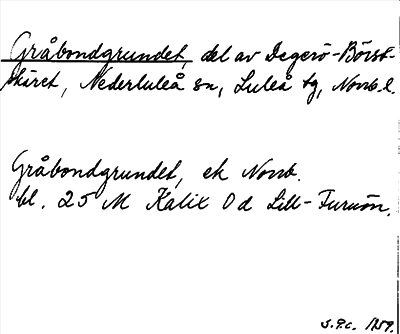 Gråbondgrundet, del av Degerö-Börst-
skäret, Nederluleå sn, Luleå tg, Norrb. l.
Gråbondgrundet, ek Norrb.
bl. 25 M Kalix Od Lill-Furuön.
S.P.C. 1959.